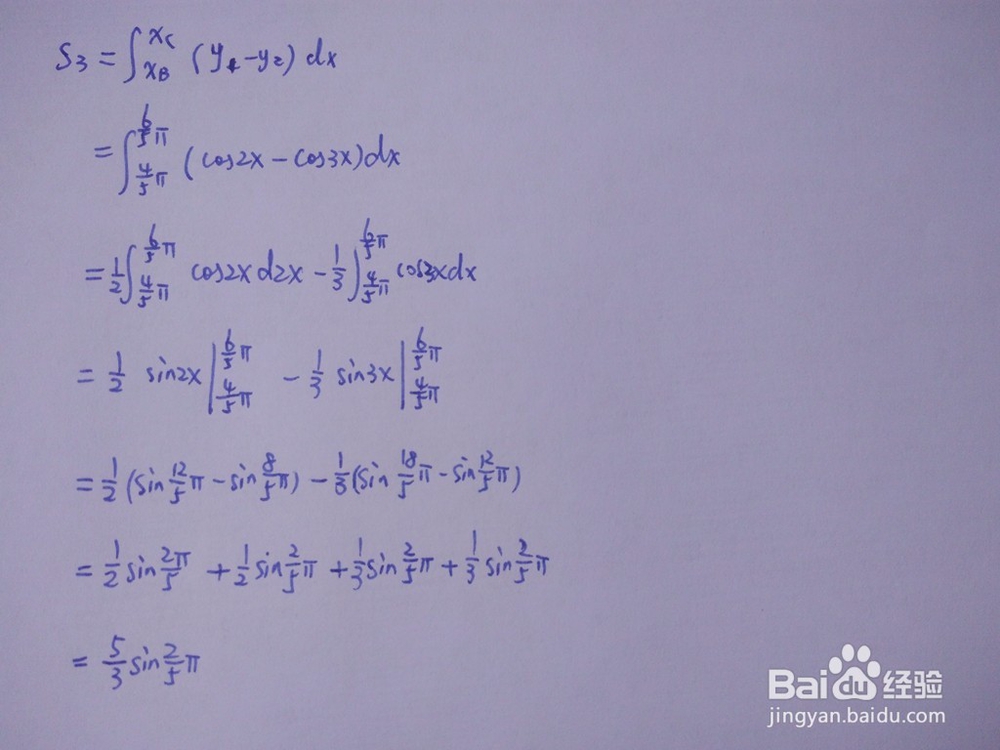 S₃ = ∫_{x_B}^{x_C} (y₁ - y₂) dx
= ∫_{4/5 π}^{6/5 π} (cos2x - cos3x)dx
= 1/2 ∫_{4/5 π}^{6/5 π} cos2x d2x - 1/3 ∫_{4/5 π}^{6/5 π} cos3xdx
= 1/2 sin2x |_{4/5 π}^{6/5 π} - 1/3 sin3x |_{4/5 π}^{6/5 π}
= 1/2 (sin 12/5 π - sin 8/5 π) - 1/3 (sin 18/5 π - sin 12/5 π)
= 1/2 sin 2π/5 + 1/2 sin 2/5 π + 1/3 sin 2/5 π + 1/3 sin 2/5 π
= 5/3 sin 2/5 π
Baidu 经验
jingyan.baidu.com